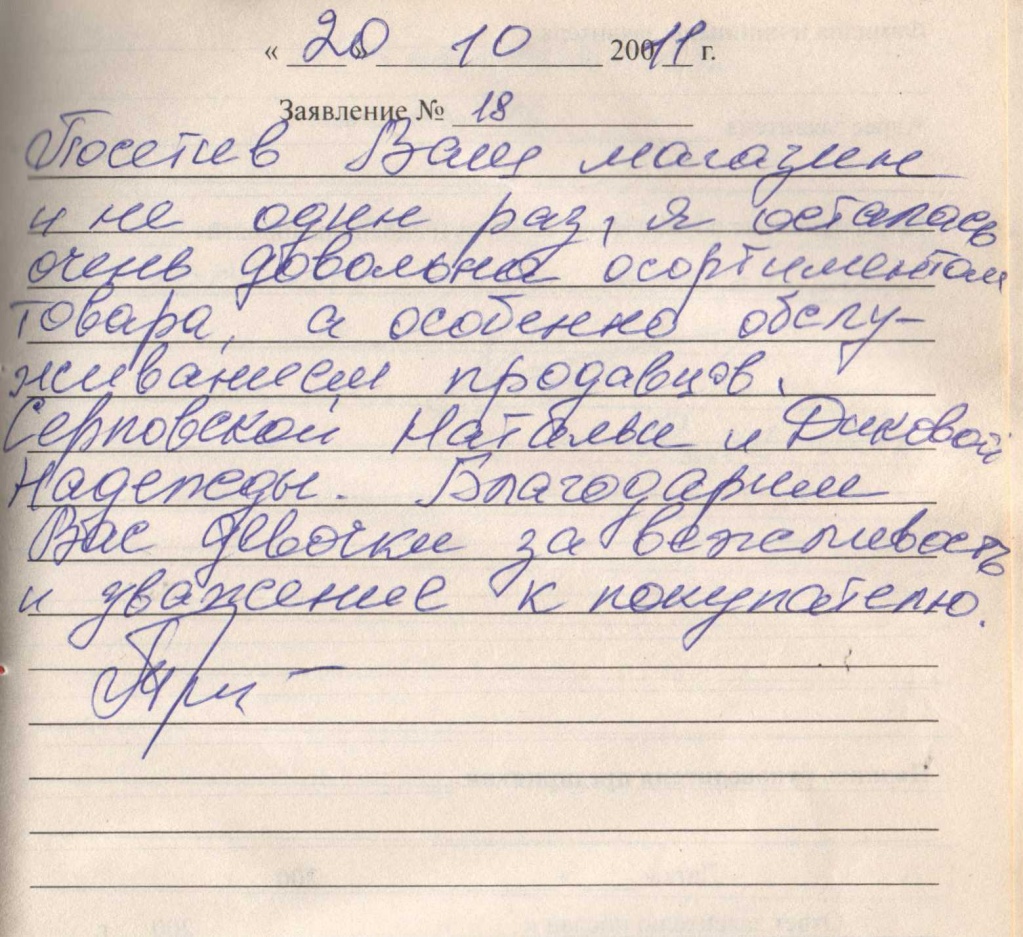 « 20 » 10 20011 г.
Заявление № 18
Посетив Ваш магазин
и не один раз, я осталась
очень довольна осортиментом
товара, а особенно обслу-
живанием продавцов.
Серповской Натальи и Диковой
Надежды. Благодарим
Вас девочки за вежливость
и уважение к покупателю.